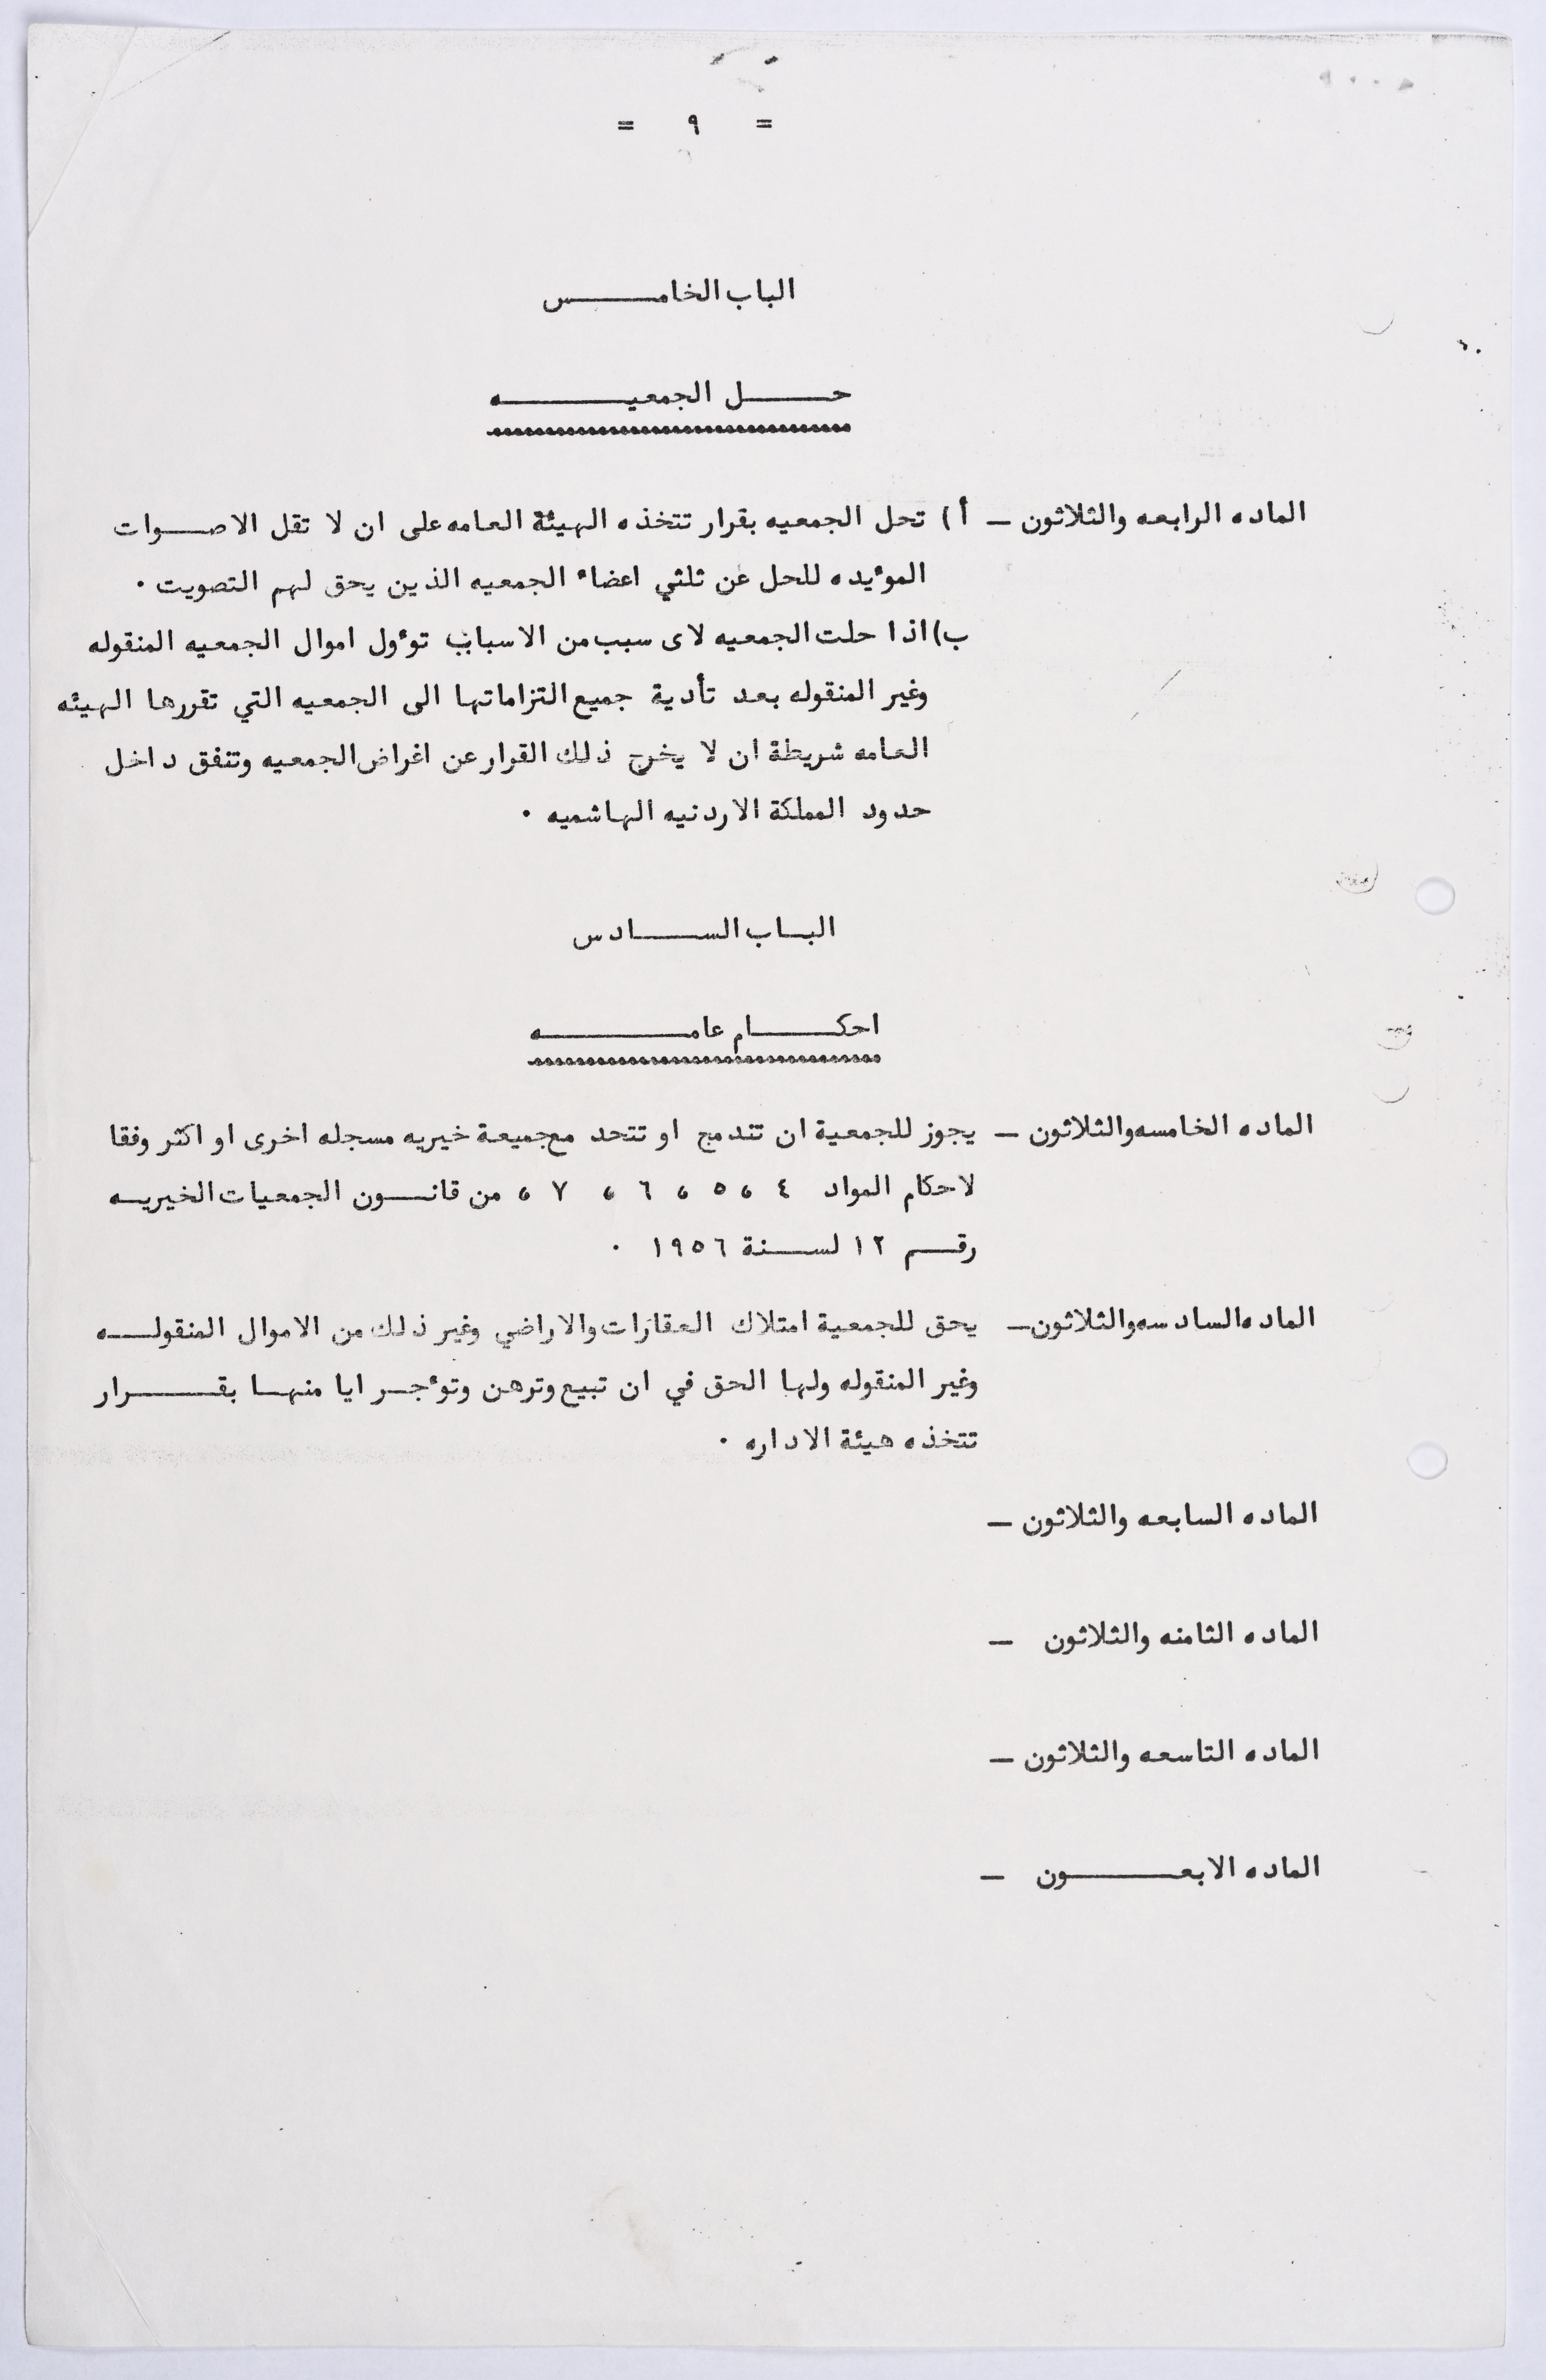 = ٩ =
الباب الخامس
حل الجمعيه
الماده الرابعه والثلاثون — أ ) تحل الجمعيه بقرار تتخذه الهيئة العامه على ان لا تقل الاصوات
المؤيده للحل عن ثلثي اعضاء الجمعيه الذين يحق لهم التصويت .
ب) اذا حلت الجمعيه لاى سبب من الاسباب تؤول اموال الجمعيه المنقوله
وغير المنقوله بعد تأدية جميع التزاماتها الى الجمعيه التي تقررها الهيئه
العامه شريطة ان لا يخرج ذلك القرار عن اغراض الجمعيه وتتفق داخل
حدود المملكة الاردنيه الهاشميه .
الباب السادس
احكام عامه
الماده الخامسه والثلاثون — يجوز للجمعية ان تندمج او تتحد مع جميعة خيريه مسجله اخرى او اكثر وفقا
لاحكام المواد ٤ ، ٥ ، ٦ ، ٧ ، من قانون الجمعيات الخيريه
رقم ١٢ لسنة ١٩٥٦ .
الماده السادسه والثلاثون — يحق للجمعية امتلاك العقارات والاراضي وغير ذلك من الاموال المنقوله
وغير المنقوله ولها الحق في ان تبيع وترهن وتؤجر ايا منها بقرار
تتخذه هيئة الاداره .
الماده السابعه والثلاثون —
الماده الثامنه والثلاثون —
الماده التاسعه والثلاثون —
الماده الابعون —